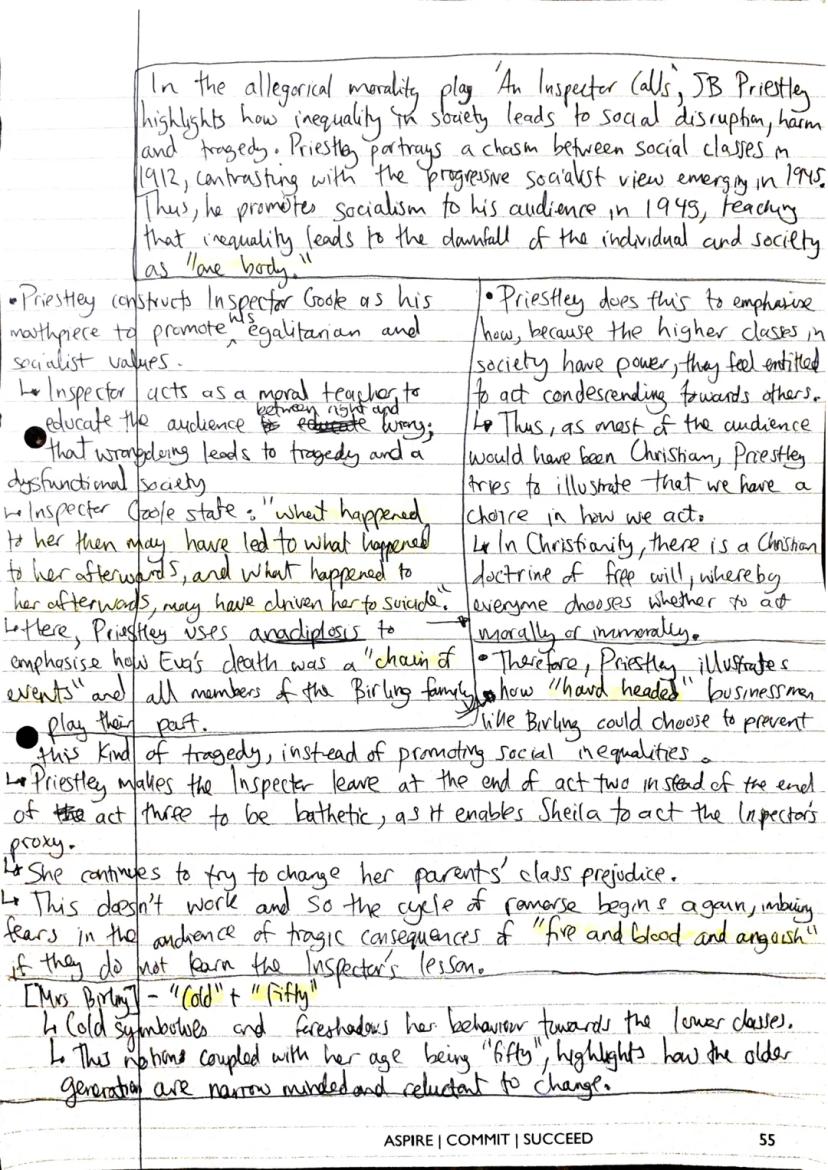 In the allegorical morality play 'An Inspector Calls', JB Priestley
highlights how inequality in society leads to social disruption, harm
and tragedy. Priestley portrays a chasm between social classes in
1912, contrasting with the progressive socialist view emerging in 1945.
Thus, he promotes socialism to his audience in 1945, teaching
that inequality leads to the downfall of the individual and society
as "one body."
• Priestley constructs Inspector Goole as his
mouthpiece to promote his egalitarian and
socialist values.
↳ Inspector acts as a moral teacher to
educate the audience between right and wrong;
that wrongdoing leads to tragedy and a
dysfunctional society
↳ Inspector Goole state: "what happened
to her then may have led to what happened
to her afterwards, and what happened to
her afterwards, may have driven her to suicide".
↳ Here, Priestley uses anadiplosis to
emphasise how Eva's death was a "chain of
events" and all members of the Birling family
play their part.
• Priestley does this to emphasise
how, because the higher classes in
society have power, they feel entitled
to act condescending towards others.
↳ Thus, as most of the audience
would have been Christian, Priestley
tries to illustrate that we have a
choice in how we act.
↳ In Christianity, there is a Christian
doctrine of free will, whereby
everyone chooses whether to act
morally or immorally.
• Therefore, Priestley illustrates
how "hard headed" businessmen
like Birling could choose to prevent
this kind of tragedy, instead of promoting social inequalities.
↳ Priestley makes the Inspector leave at the end of act two instead of the end
of act three to be bathetic, as it enables Sheila to act the Inspector's
proxy.
↳ She continues to try to change her parents' class prejudice.
↳ This doesn't work and so the cycle of remorse begins again, imbuing
fears in the audience of tragic consequences of "fire and blood and anguish"
if they do not learn the Inspector's lesson.
[Mrs Birling] - "Cold" + "fifty"
↳ Cold symbolises and foreshadows her behaviour towards the lower classes.
↳ This notions coupled with her age being "fifty", highlights how the older
generation are narrow minded and reluctant to change.
ASPIRE | COMMIT | SUCCEED 55